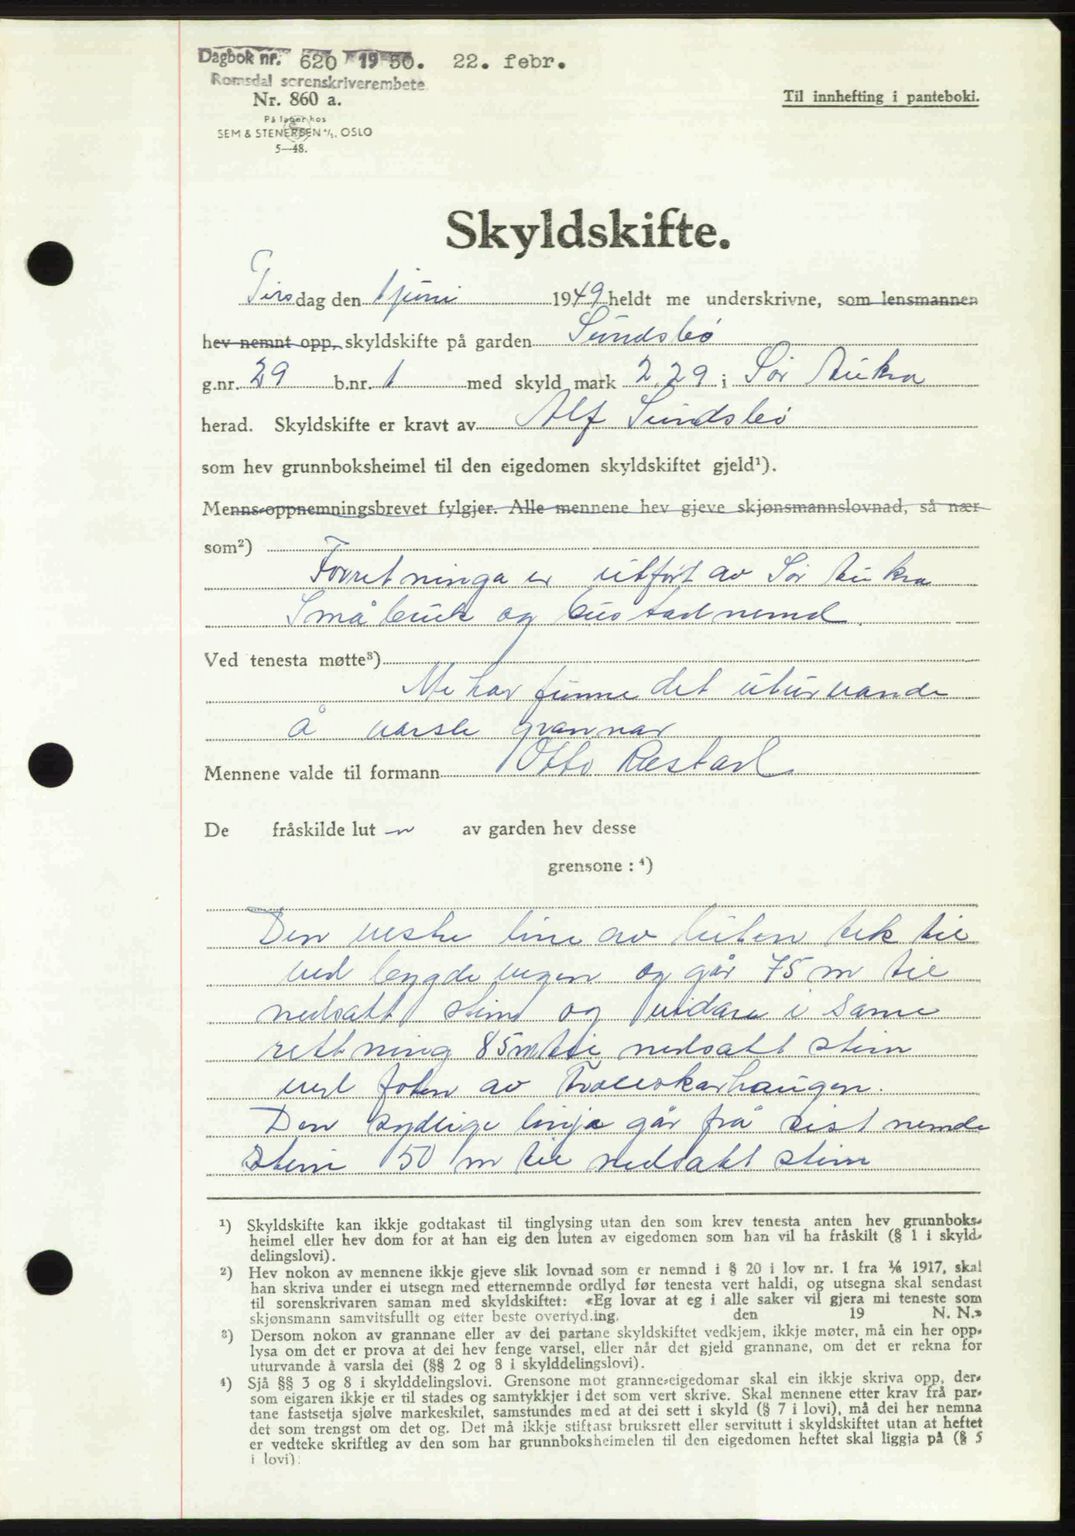 Dagbok nr. 620 1950. 22. febr.
Romsdal sorenskriverembete
Nr. 860 a.
Til innhefting i panteboki.
På lager hos
SEM & STENERSEN A/S, OSLO
5—48.
Skyldskifte.
Tirsdag den 1 juni 1949 heldt me underskrivne, som lensmannen
hev nemnt opp, skyldskifte på garden Sundsbö
g.nr. 29 b.nr. 1 med skyld mark 2.29 i Sör Aukra
herad. Skyldskifte er kravt av Alf Sundsbö
som hev grunnboksheimel til den eigedomen skyldskiftet gjeld¹).
Menns-oppnemningsbrevet fylgjer. Alle mennene hev gjeve skjønsmannslovnad, så nær
som²)
Forretninga er utfört av Sör Aukra
Småbruk og bustadnemd.
Ved tenesta møtte³)
Me har funne det uturvande
å varsle grannar
Mennene valde til formann OttoRæstad
De fråskilde lut av garden hev desse
grensone : ⁴)
Den vestre line av luten tek til
ved bygdevegen og går 75 m til
nedsatt stein og vidare i same
rettning 85m til nedsatt stein
ved foten av Trollskarhaugen.
Den sydlige linja går frå sist nemde
stein 50 m til nedsatt stein
¹) Skyldskifte kan ikkje godtakast til tinglysing utan den som krev tenesta anten hev grunnboks-
heimel eller hev dom for at han eig den luten av eigedomen som han vil ha fråskilt (§ 1 i skyld-
delingslovi).
²) Hev nokon av mennene ikkje gjeve slik lovnad som er nemnd i § 20 i lov nr. 1 fra 1/6 1917, skal
han skriva under ei utsegn med etternemnde ordlyd før tenesta vert haldi, og utsegna skal sendast
til sorenskrivaren saman med skyldskiftet: «Eg lovar at eg i alle saker vil gjera mi teneste som
skjønsmann samvitsfullt og etter beste overtyd.ing. den 19 N. N.»
³) Dersom nokon av grannane eller av dei partane skyldskiftet vedkjem, ikkje møter, må ein her opp-
lysa om det er prova at dei hev fenge varsel, eller når det gjeld grannane, om det er rekna for
uturvande å varsla dei (§§ 2 og 8 i skylddelingslovi).
⁴) Sjå §§ 3 og 8 i skylddelingslovi. Grensone mot granne-eigedomar skal ein ikkje skriva opp, der-
som eigaren ikkje er til stades og samtykkjer i det som vert skrive. Skal mennene etter krav frå par-
tane fastsetja sjølve markeskilet, samstundes med at dei sett i skyld (§ 7 i lovi), må dei her nemna
det som trengst om det og. Det må ikkje stiftast bruksrett eller servitutt i skyldskiftet utan at heftet
er vedteke skriftleg av den som har grunnboksheimelen til den eigedomen heftet skal liggja på (§ 5
i lovi).